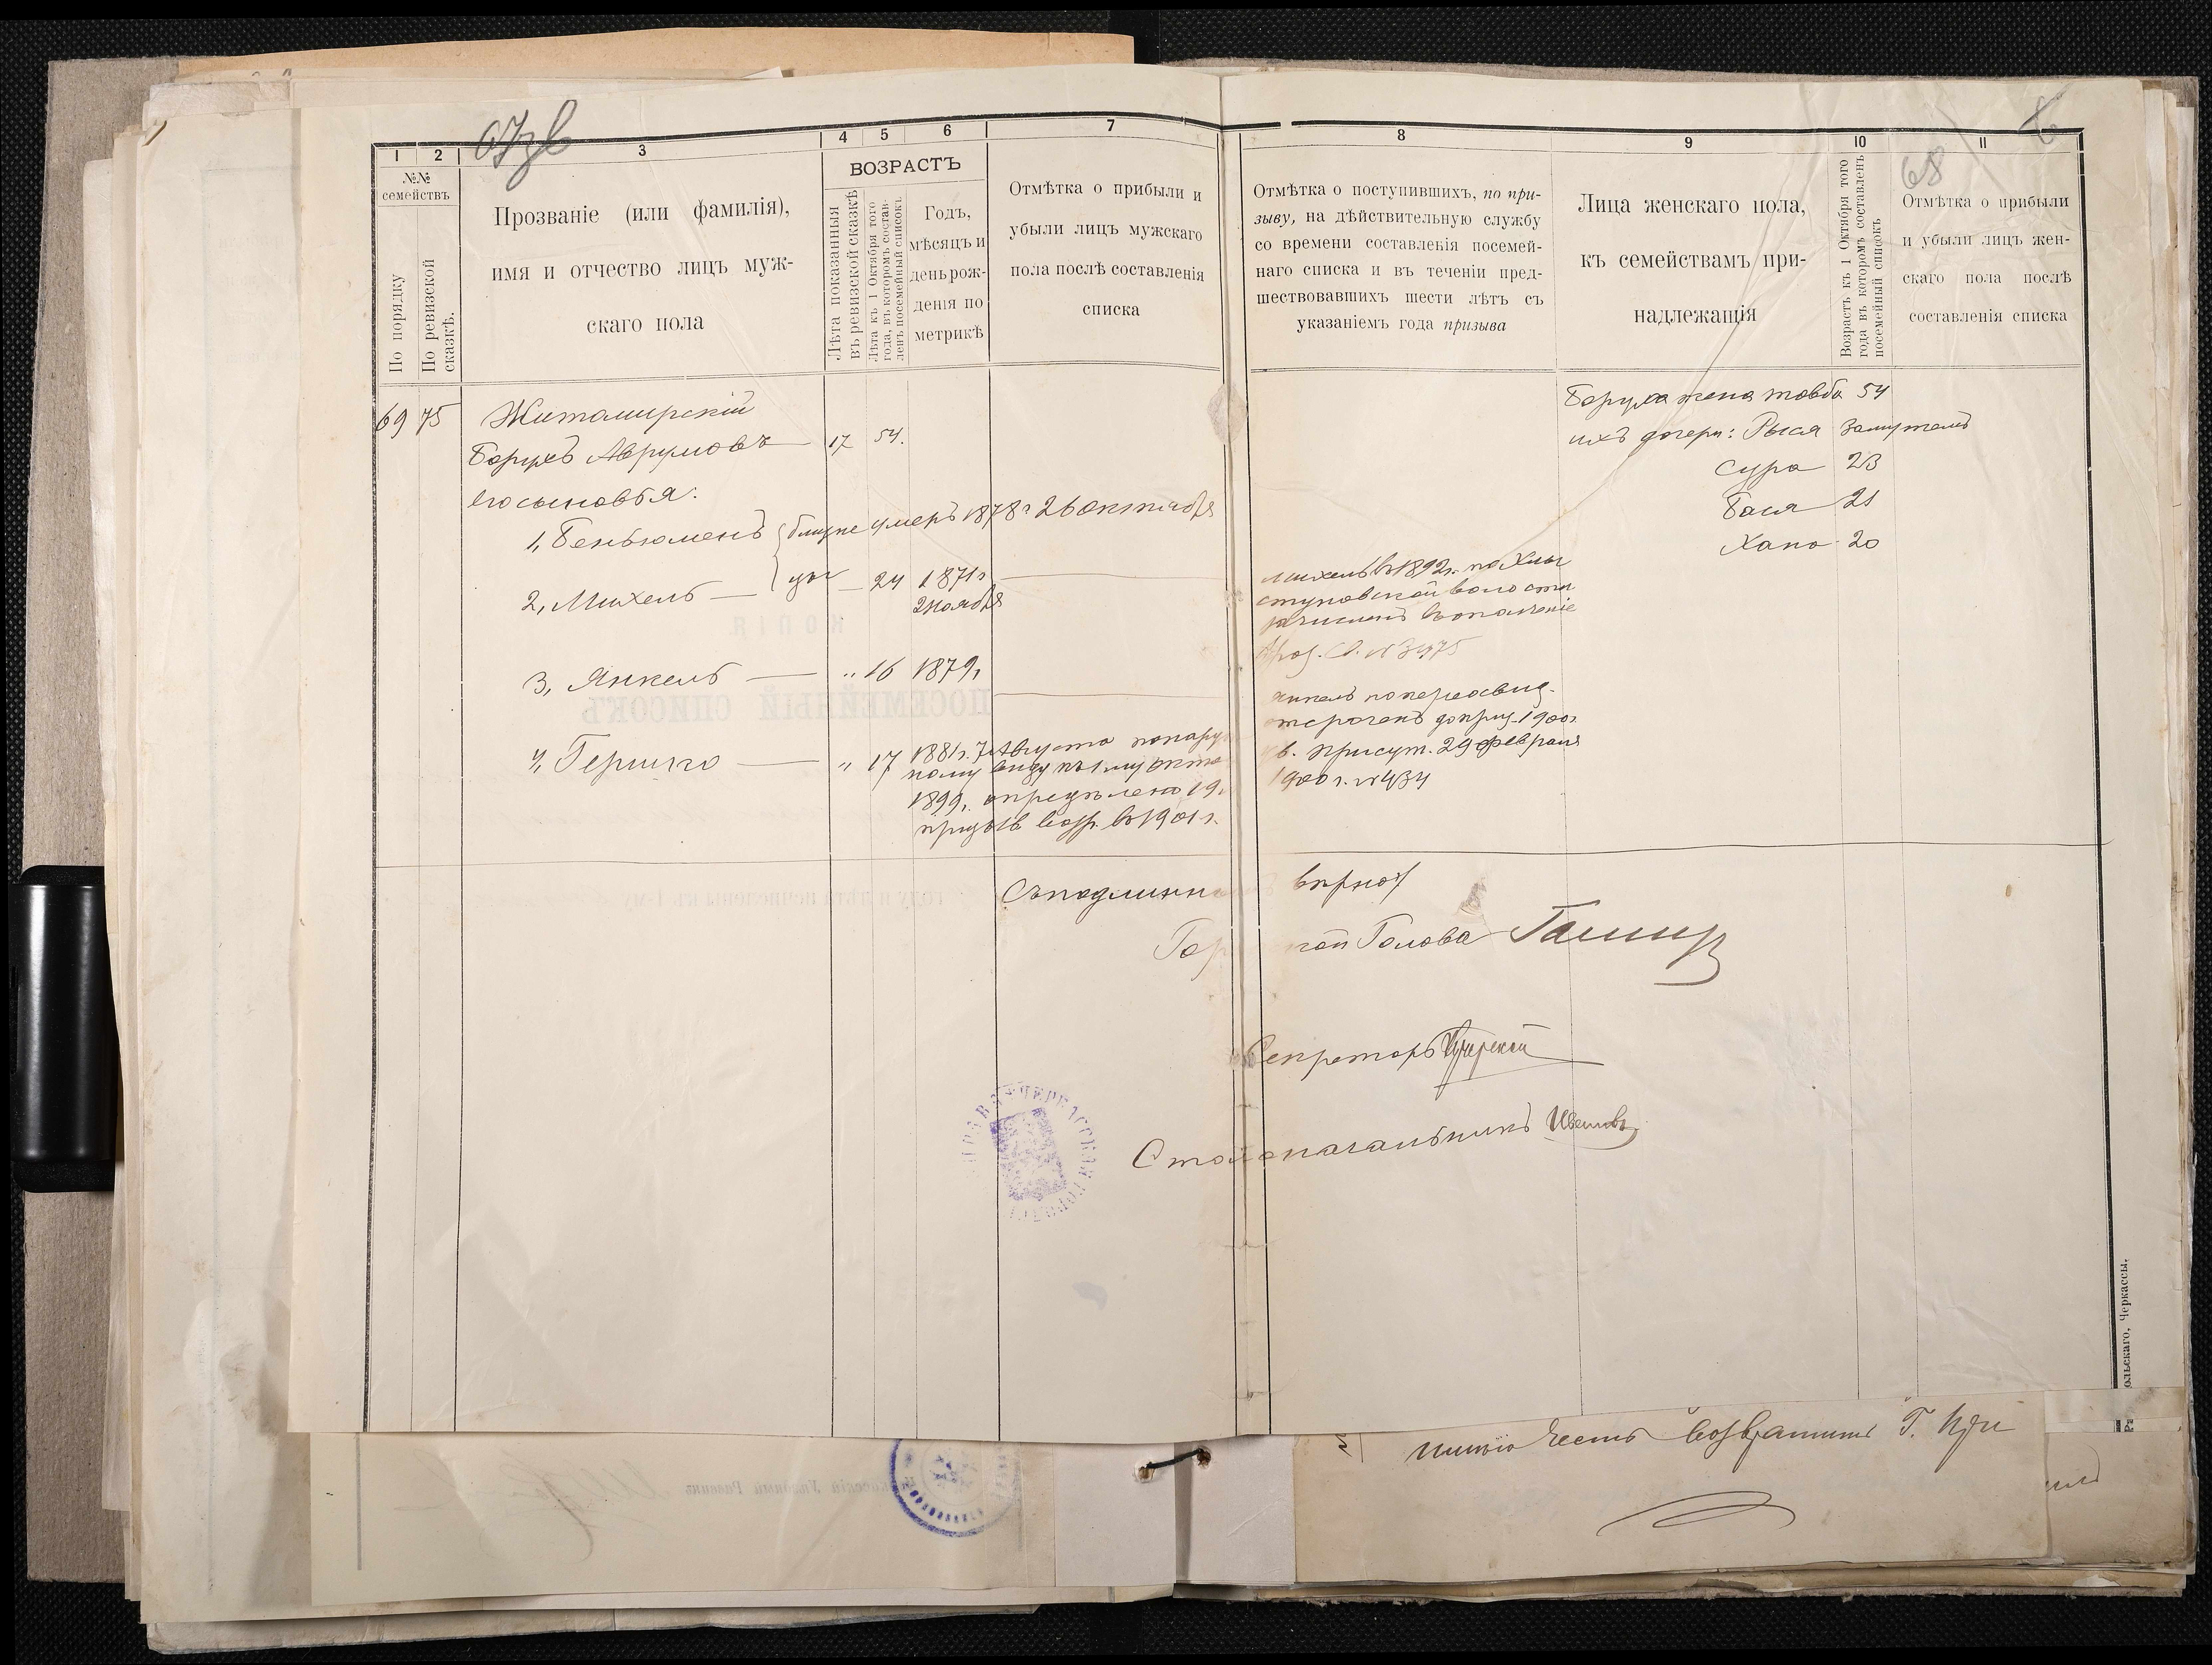 67 зв
1
2
3
4
5
6
7
№№
семействъ
По порядку
По ревизской
сказкѣ.
Прозваніе (или фамилія),
имя и отчество лицъ муж-
скаго пола
ВОЗРАСТЪ
Лѣта показанныя
въ ревизской сказкѣ
Лѣта къ 1 Октября того
года, въ которомъ состав-
ленъ посемейный списокъ.
Годъ,
мѣсяцъ и
день рож-
денія по
метрикѣ
Отмѣтка о прибыли и
убыли лицъ мужскаго
пола послѣ составленія
списка
69 75 Житомирскій
Борухъ Аврумовъ — 17 54.
его сыновья:
1, Беньюменъ близне умеръ 1878 г 26 октября
2, Михель — цы — 24 1871 г
2 ноября
3, Янкель — „ 16 1879 г
4, Гершко — „ 17 1881 г. 7 Августа по нару
ному виду къ 1му окт
1899 г. опредѣлено 19 л
призыв возр. въ 1901 г.
Съ подлинн
Гор
8
9
10
11
68
Отмѣтка о поступившихъ, по при-
зыву, на дѣйствительную службу
со времени составленія посемей-
наго списка и въ теченіи пред-
шествовавшихъ шести лѣтъ съ
указаніемъ года призыва
Лица женскаго пола,
къ семействамъ при-
надлежащія
Возрастъ къ 1 Октября того
года въ которомъ составленъ
посемейный списокъ
Отмѣтка о прибыли
и убыли лицъ жен-
скаго пола послѣ
составленія списка
Боруха жена Товба 54
ихъ дочери: Рыся замужемъ
Сура 23
Бася 21
Хана 20
Михель въ 1892 г. по Хлы
ступовской волости
зачисленъ въ ополченіе
№ 3975
Янкель по переосвид.
отсроченъ до приз. 1900 г
в. Присут. 29 февраля
1900 г. № 434
вѣрно
кой Голова
Секретарь
Столоначальникъ
ЧЕРКАССКАЯ
ольскаго, Черкассы.
имѣю честь возвратить Г.